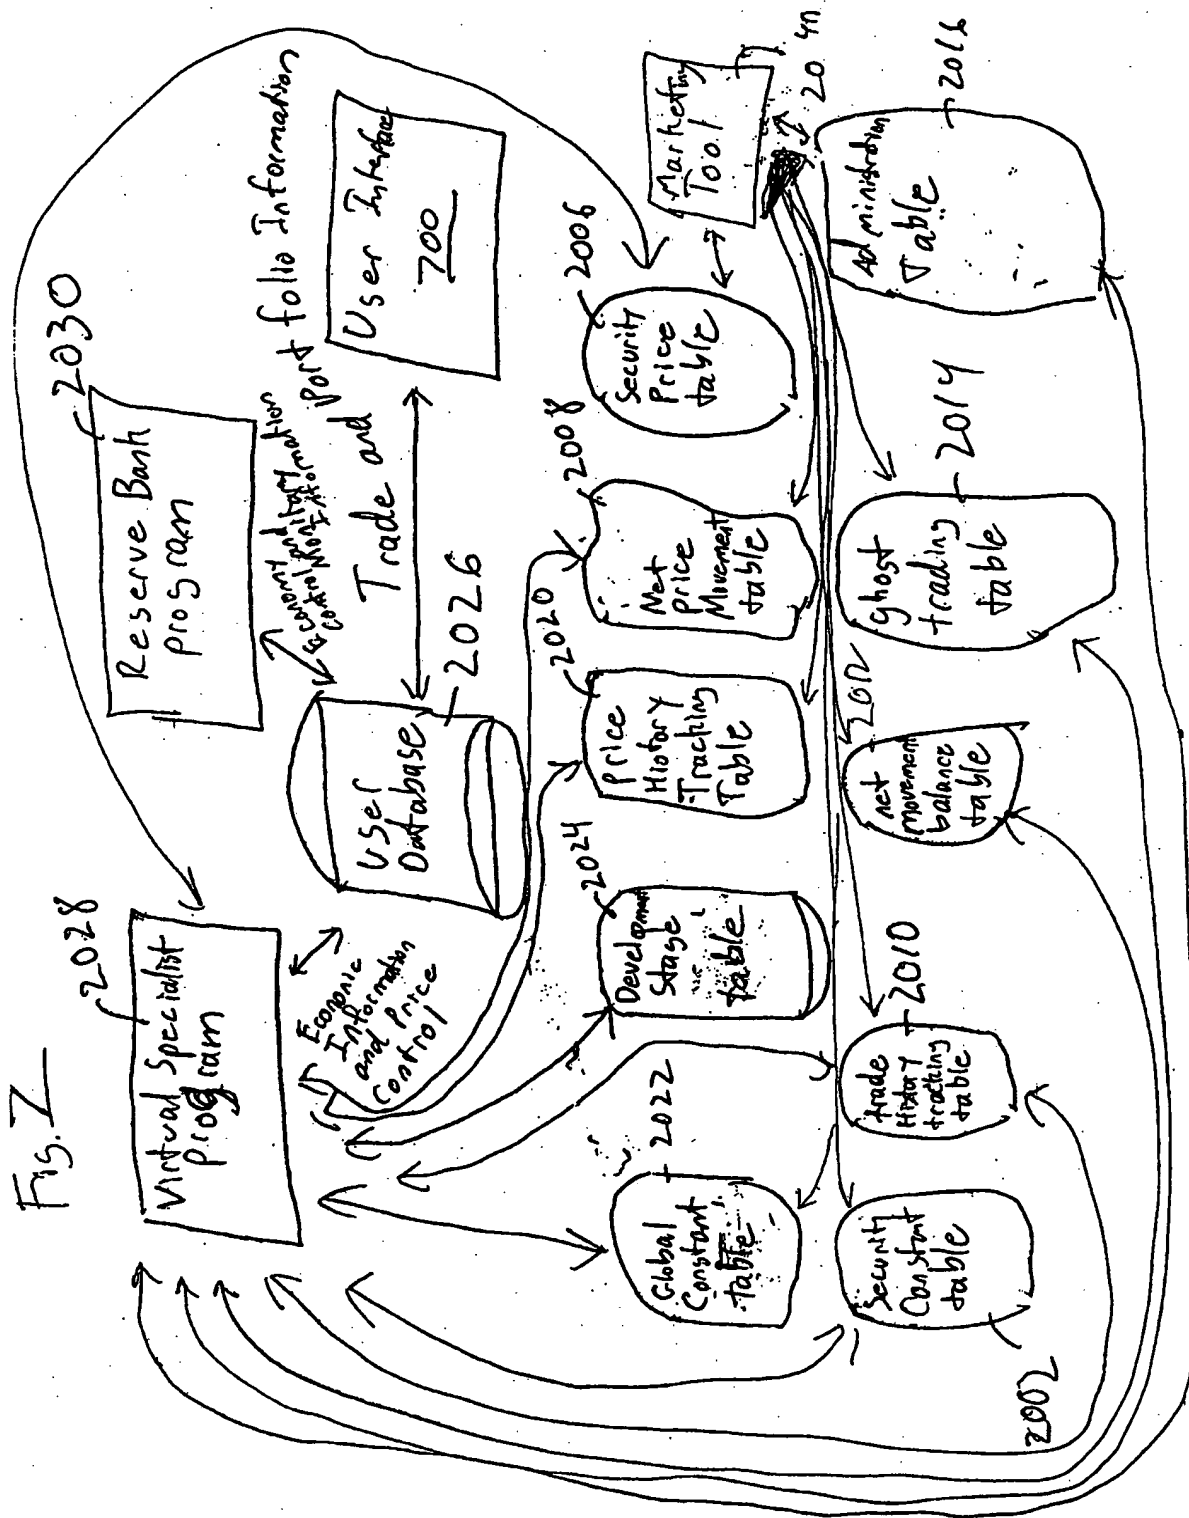 Fig. 7
2028
Virtual Specialist
Program
2030
Reserve Bank
program
Economic
Information
and Price
Control
User
Database
2026
Economy and
Control
Information
Trade and Portfolio Information
User Interface
700
2022
Global
Constant
table
2024
Development
Stage
table
2020
Price
History
Tracking
Table
2008
Net
Price
Movement
table
2006
Security
Price
table
Marketing
Tool
2002
Security
Constant
table
2010
trade
History
tracking
table
2012
net
movement
balance
table
2014
ghost
trading
table
2016
Administration
Table